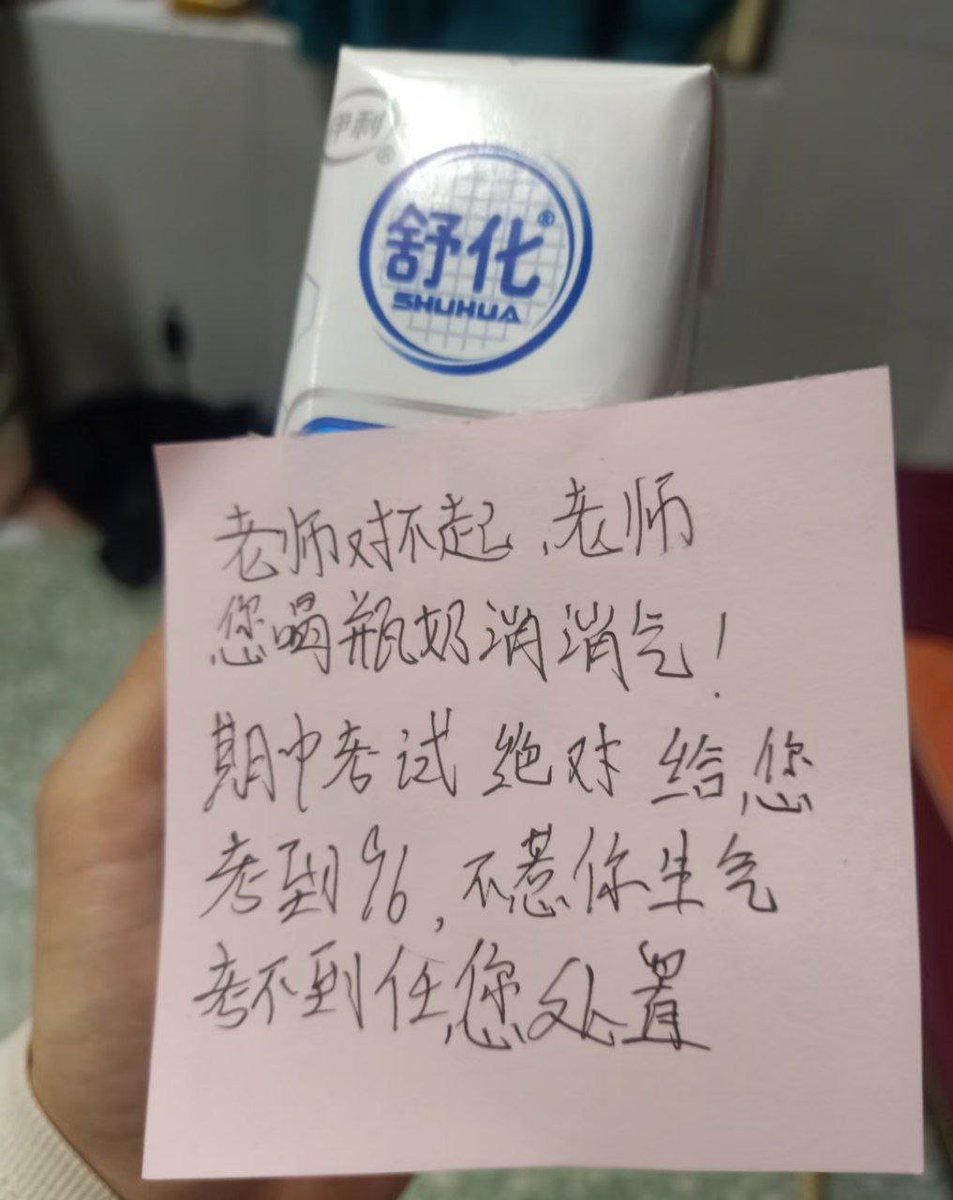 伊利®
舒化®
SHUHUA
老师对不起、老师
您喝瓶奶消消气!
期中考试绝对给您
考到96,不惹你生气
考不到任您处置